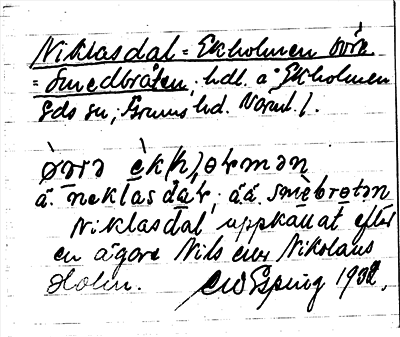 Niklasdal = Ekholmen övre
= Smedbråten, hdl. å Ekholmen
Eds sn, Grums hd. Värml.
ö̀vrə èk(h)ɔɽmən
å. neklasdaɽ, åå. smèbrɵtən
Niklasdal uppkallat efter
en ägare Nils eller Nikolaus
Holm. 1932.